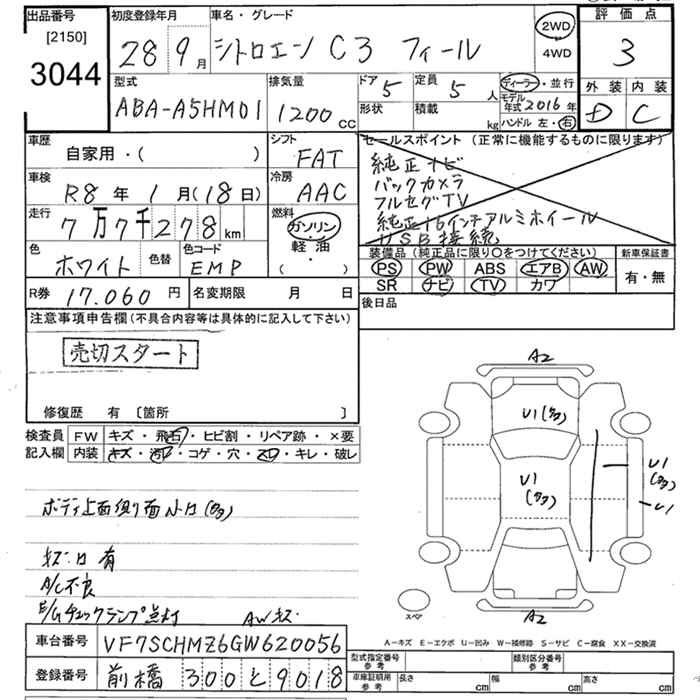 出品番号 初度登録年月 車名・グレード 評価点
[2150]
3044
28 9月 シトロエン C3 フィール 2WD 4WD 3
型式 排気量 ドア 5 定員 5人 ディーラー・並行 外装 内装
ABA-A5HM01 1200cc 形状 積載 kg モデル年式 2016年 D C
ハンドル 左・右
車歴 シフト セールスポイント(正常に機能するものに限ります)
自家用・( ) FAT 純正ナビ
車検 冷房 バックカメラ
R8年 1月(18日) AAC フルセグTV
走行 燃料 純正16インチアルミホイール
7万7千278km ガソリン・ USB接続
色 色替 色コード 軽油・
ホワイト EMP ( )
装備品(純正品に限り○をつけてください) 新車保証書
PS PW ABS エアB AW 有・無
SR ナビ TV カワ
R券 17.060円 名変期限 月 日 後日品
注意事項申告欄(不具合内容等は具体的に記入して下さい)
売切スタート
修復歴 有 〔箇所 〕
検査員記入欄 FW キズ・飛石・ヒビ割・リペア跡・×要
内装 キズ・汚れ・コゲ・穴・スレ・キレ・破レ
A2
U1(多)
U1(多)
U1
U1
A2
スペア
ボディ上面側面小凹(多)
キズ・凹有
A/C不良
E/Gチェックランプ点灯 AWキズ
A-キズ E-エクボ U-凹み W-補修跡 S-サビ C-腐食 XX-交換済
車台番号 VF7SCHMZ6GW620056
登録番号 前橋 300 と 9018
型式指定番号 参考 類別区分番号 参考
車庫証明用 参考 長さ cm 幅 cm 高さ cm